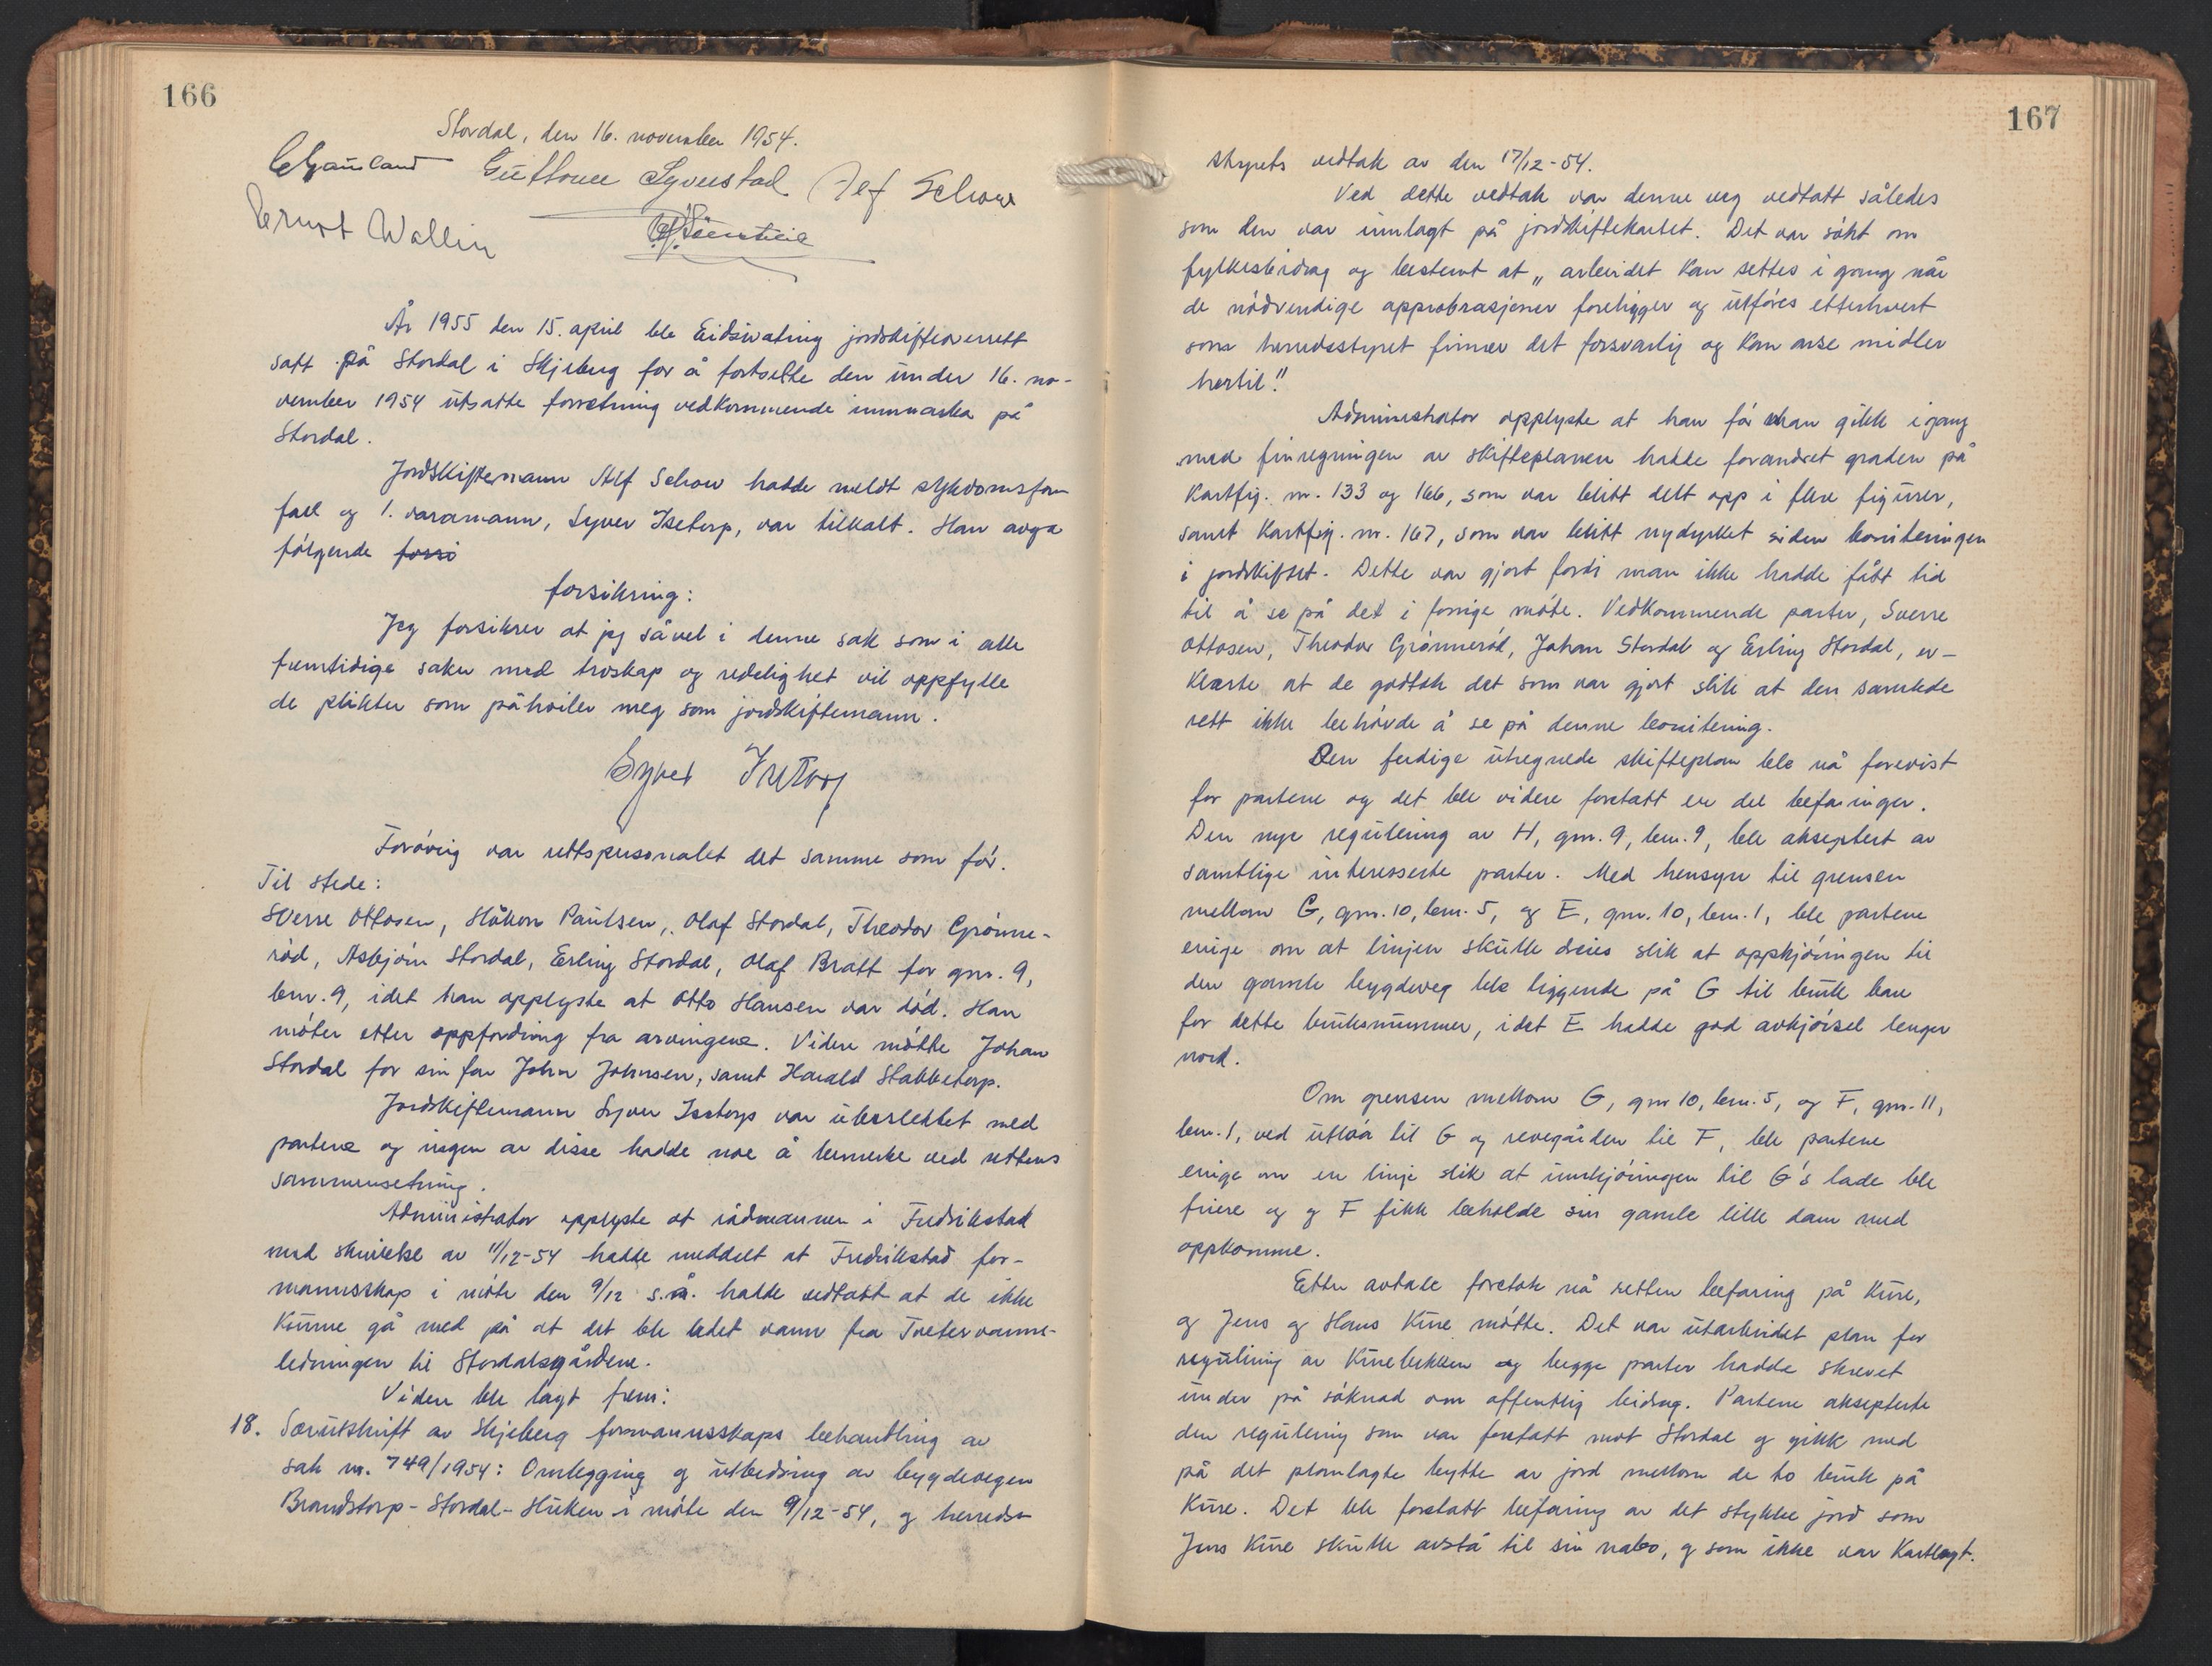 166
Stordal, den 16. november 1954.
Guttorm Syverstad Alf Schou
Ernst Wallin
År 1955 den 15. april ble Eidsivating jordskifteoverrett
satt på Stordal i Skjeberg for å fortsette den under 16. no-
vember 1954 utsatte forretning vedkommende innmarka på
Stordal.
Jordskiftemann Alf Schou hadde meldt sykdomsfor-
fall og 1. varamann, Syver Isetorp, var tilkalt. Han avga
følgende forsi
forsikring:
Jeg forsikrer at jeg såvel i denne sak som i alle
fremtidige saker med troskap og redelighet vil oppfylle
de plikter som påhviler meg som jordskiftemann.
Syver Isetorp
Forøvrig var rettspersonalet det samme som før.
Til stede:
Sverre Ottosen, Håkon Paulsen, Olaf Stordal, Theodor Grønne-
rød, Asbjørn Stordal, Erling Stordal, Olaf Bratt for gnr. 9,
bnr. 9, idet han opplyste at Otto Hansen var død. Han
møter etter oppfordring fra arvingene. Videre møtte Johan
Stordal for sin far John Johnsen, samt Harald Stabbetorp.
Jordskiftemann Syver Isetorp var ubeslektet med
partene og ingen av disse hadde noe å bemerke ved rettens
sammensetning.
Administrator opplyste at rådmannen i Fredrikstad
med skrivelse av 11/12-54 hadde meddelt at Fredrikstad for-
mannsskap i møte den 9/12 s.å. hadde vedtatt at de ikke
kunne gå med på at det ble ledet vann fra Tvetervanns-
ledningen til Stordalsgårdene.
Videre ble lagt frem:
18. Særutskrift av Skjeberg formannsskaps behandling av
sak nr. 749/1954: Omlegging og utbedring av bygdevegen
Brandstorp-Stordal-Huken i møte den 9/12-54, og herreds-
167
styrets vedtak av den 17/12-54.
Ved dette vedtak var denne veg vedtatt således
som den var innlagt på jordskiftekartet. Det var søkt om
fylkesbidrag og bestemt at „arbeidet kan settes i gang når
de nødvendige approbrasjoner foreligger og utføres etterhvert
som herredsstyret finner det forsvarlig og kan anse midler
hertil."
Administrator opplyste at han før han gikk igang
med finregningen av skifteplanen hadde forandret graden på
Kartfig. nr. 133 og 166, som var blitt delt opp i flere figurer,
samt Kartfig. nr. 167, som var blitt nydyrket siden boniteringen
i jordskiftet. Dette var gjort fordi man ikke hadde fått tid
til å se på det i forrige møte. Vedkommende parter, Sverre
Ottosen, Theodor Grønnerød, Johan Stordal og Erling Stordal, er-
klærte at de godtok det som var gjort slik at den samlede
rett ikke behøvde å se på denne bonitering.
Den ferdige utregnede skifteplan ble nå forevist
for partene og det ble videre foretatt en del befaringer.
Den nye regulering av H, gnr. 9, bnr. 9, ble akseptert av
samtlige interesserte parter. Med hensyn til grensen
mellom G, gnr. 10, bnr. 5, og E, gnr. 10, bnr. 1, ble partene
enige om at linjen skulle dreies slik at oppkjøringen til
den gamle bygdeveg ble liggende på G til bruk bare
for dette bruksnummer, idet E hadde god avkjørsel lenger
nord.
Om grensen mellom G, gnr 10, bnr. 5, og F, gnr. 11,
bnr. 1, ved utløa til G og revegården til F, ble partene
enige om en linje slik at innkjøringen til G's lade ble
friere og g F fikk beholde sin gamle lille dam med
oppkomme.
Etter avtale foretok nå retten befaring på Kure,
og Jens og Hans Kure møtte. Det var utarbeidet plan for
regulering av Kurebekken og begge parter hadde skrevet
under på søknad om offentlig bidrag. Partene aksepterte
den regulering som var foretatt mot Stordal og gikk med
på det planlagte bytte av jord mellom de to bruk på
Kure. Det ble foretatt befaring av det stykke jord som
Jens Kure skulle avstå til sin nabo, og som ikke var Kartlagt.